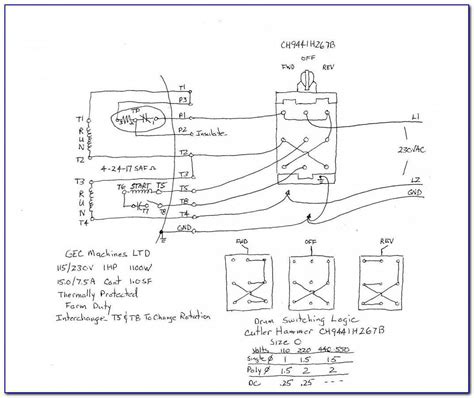 CH9441H267B
OFF
FWD REV
T1
P3
TP
P1
P2 Insulate
T1
RUN
T2
T2
4-24-17 SAF
T3
T3
T6 START T5 T5
RUN
T8
T7 T8
T4
T4
GND
E
L1
230VAC
L2
GND
GEC Machines LTD
115/230V 1HP 1100W
15.0/7.5A Cont 1.0SF
Thermally Protected
Farm Duty
Interchange T5 & T8 To Change Rotation
FWD OFF REV
Drum Switching Logic
Cutler Hammer CH9441H267B
Size 0
Volts 110 220 440 550
Single Ø 1 1.5 1.5
Poly Ø 1.5 2 2
DC .25 .25 -